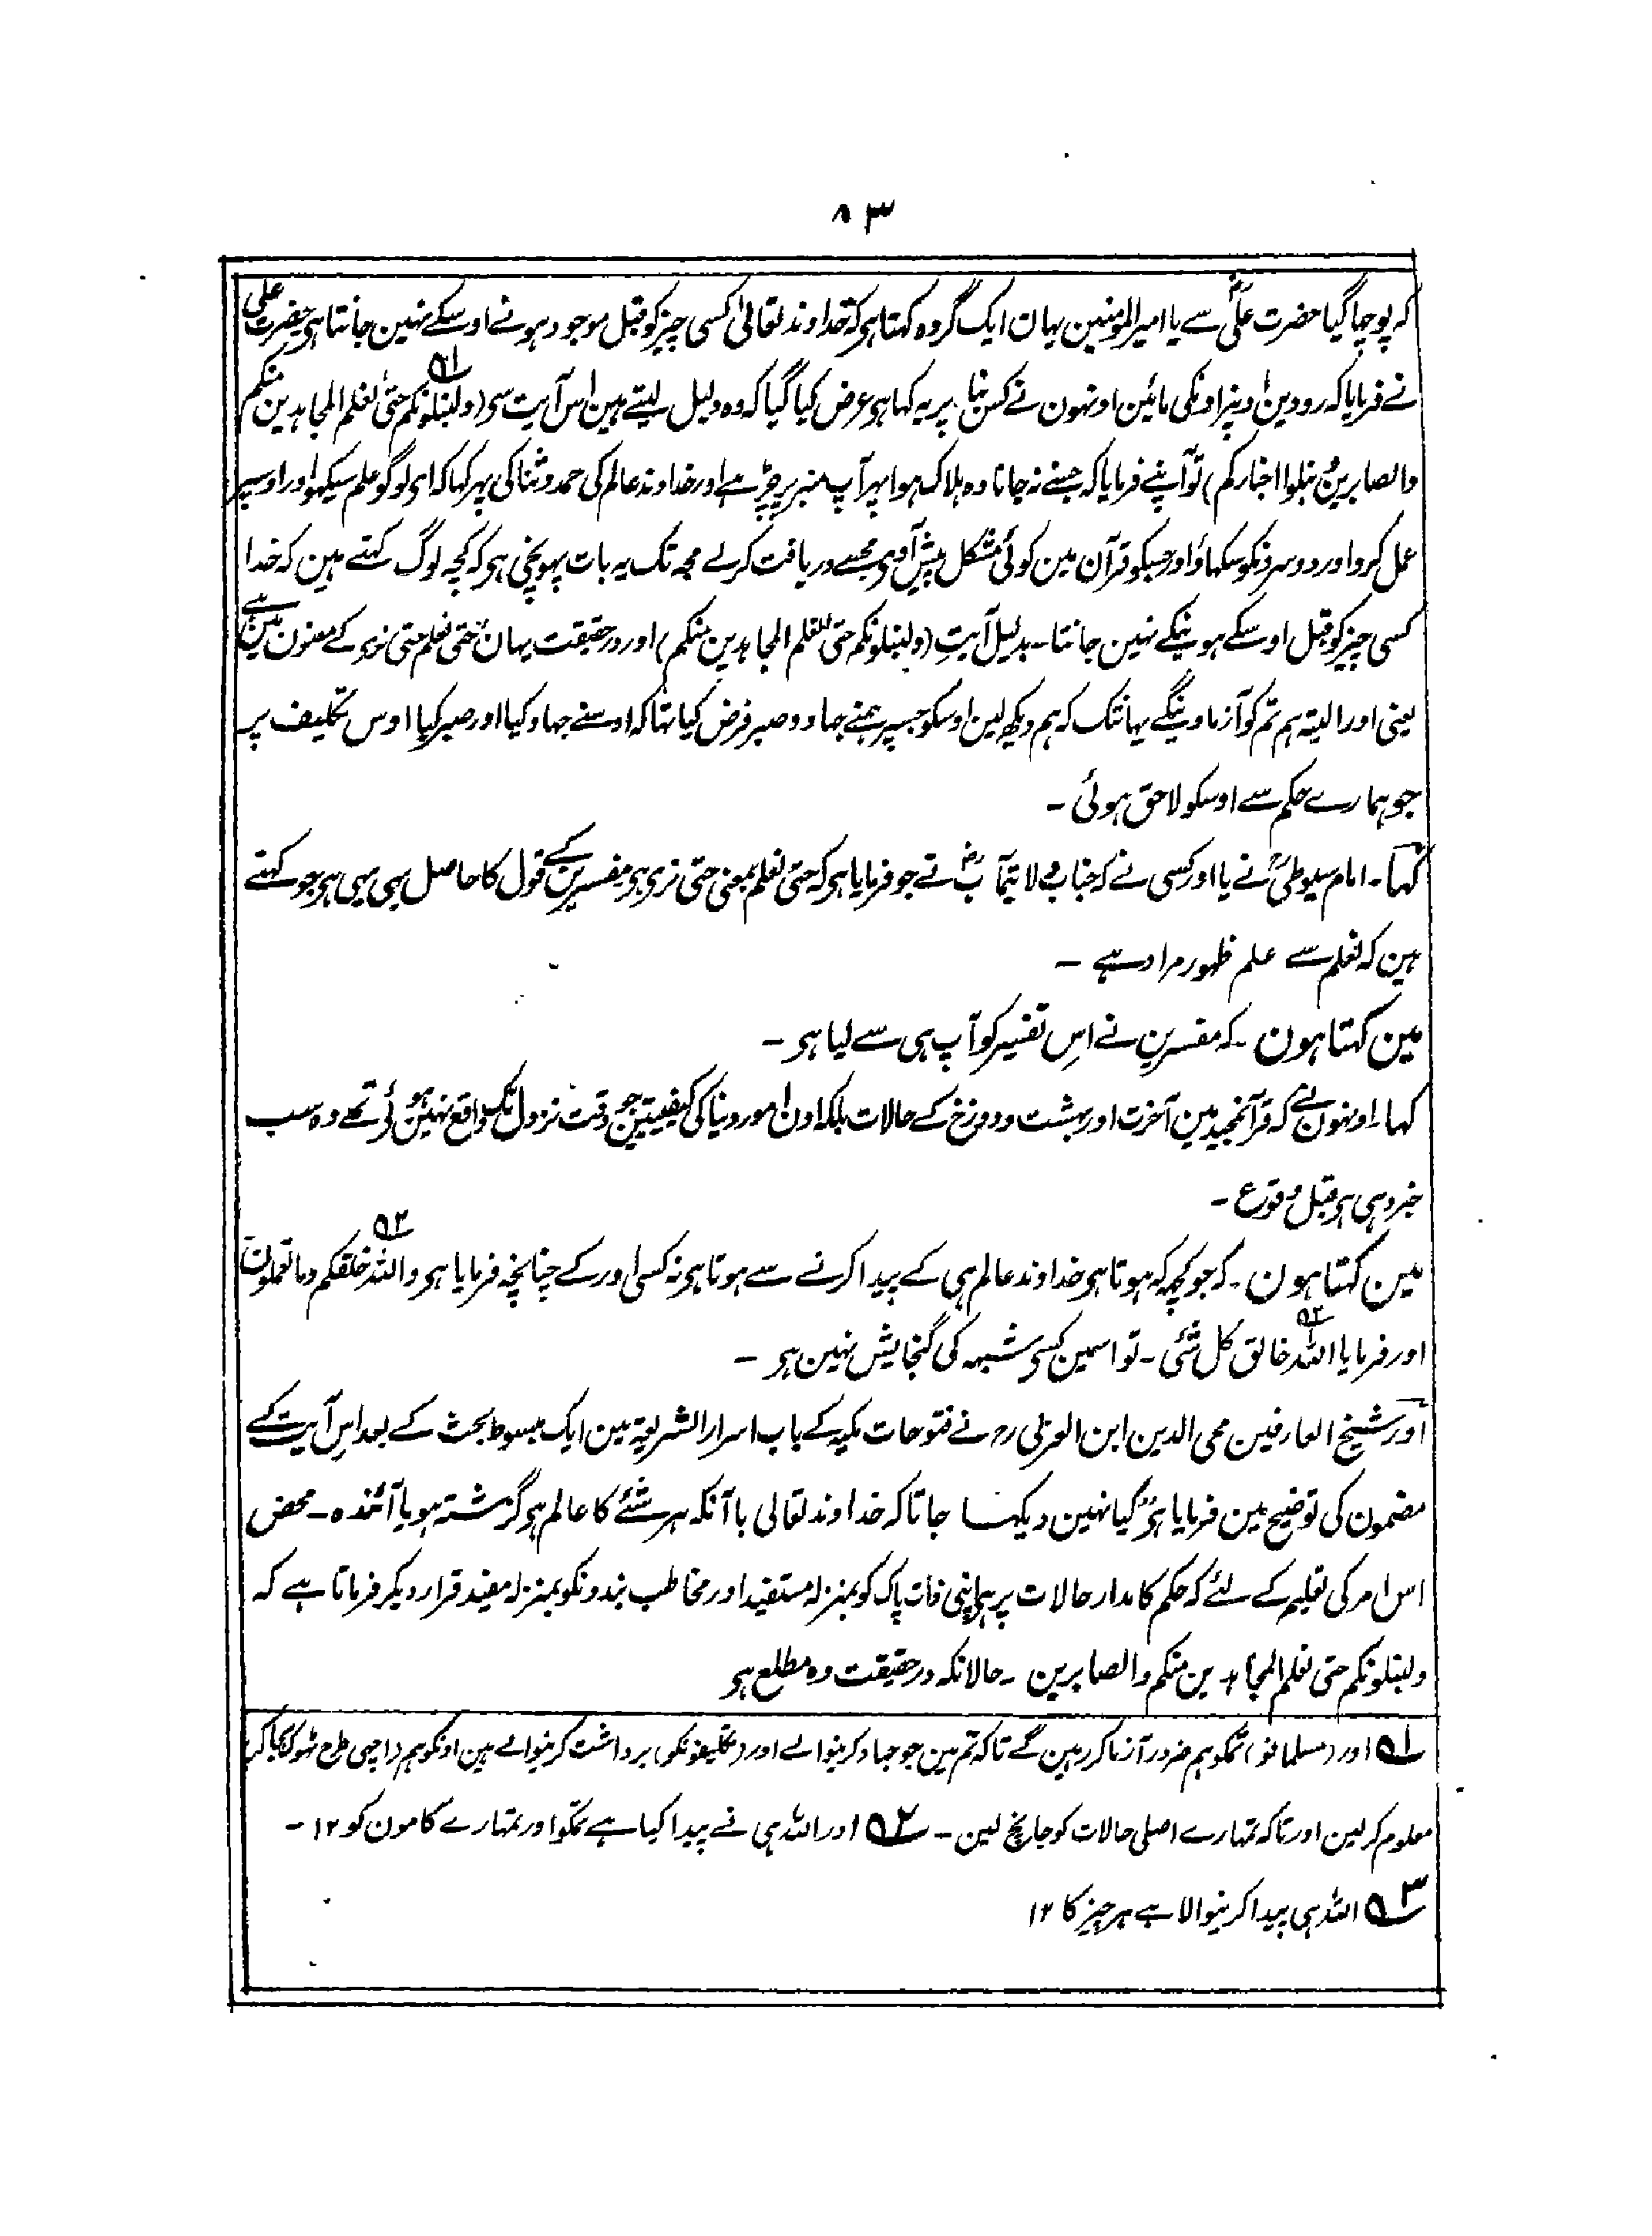 ۸۳
کہ پوچہا گیا حضرت علیؓ سے یا امیر المومنین یہان ایک گروہ کہتا ہی کہ خداوند تعالیٰ کسی چیز کو قبل موجود ہونے اوسکے نہین جانتا ہی حضرت علی
نے فرمایا کہ رودین اونپر اونکی مائین اونہون نے کس بنا پر یہ کہا ہی عرض کیا گیا کہ وہ دلیل لیتے ہین اس آیت سی (ولنبلونکم حتیٰ نعلم المجاہدین منکم ۵۱
والصابرین ونبلوا اخبارکم) تو آپنے فرمایا کہ جسنے نہ جانا وہ ہلاک ہوا پہر آپ منبر پر چڑہے اور خداوند عالم کی حمد و ثنا کی پہر کہا کہ ای لوگو علم سیکہو اور اوسپر
عمل کرو اور دوسرونکو سکہاؤ اور جسکو قرآن مین کوئی مشکل پیش آوی مجھسے دریافت کرلے مجہ تک یہ بات پہونچی ہی کہ کچہ لوگ کہتے ہین کہ خدا
کسی چیز کو قبل اوسکے ہونیکے نہین جانتا ۔ بدلیل آیتِ (ولنبلونکم حتی نعلم المجاہدین منکم) اور درحقیقت یہان حتی نعلم حتی نری کے معنون مین ہے
یعنی اور البتہ ہم تم کو آزماوینگے یہانتک کہ ہم دیکھ لین اوسکو جسپر ہمنے جہاد و صبر فرض کیا تہا کہ اوسنے جہاد کیا اور صبر کیا اوس تکلیف پر
جو ہمارے حکم سے اوسکو لاحق ہوئی ۔
کہا ۔ امام سیوطیؒ نے یا اور کسی نے کہ جناب ولایتمآبؓ نے جو فرمایا ہی کہ حتی نعلم بمعنی حتی نری ہی مفسرین کے قول کا حاصل بہی یہی ہی جو کہتے
ہین کہ نعلم سے علم ظہور مراد ہے ۔
مین کہتا ہون ۔ کہ مفسرین نے اسِ تفسیر کو آپ ہی سے لیا ہی ۔
کہا اونہون نے کہ قرآنمجید مین آخرت اور بہشت و دوزخ کے حالات بلکہ اون امور دنیا کی کیفیتین جو وقت نزول تک واقع نہین ہوئے تھے وہ سب
خبر دی ہی قبل وقوع ۔
مین کہتا ہون ۔ کہ جو کچہ کہ ہوتا ہی خداوند عالم ہی کے پیدا کرنے سے ہوتا ہی نہ کسی اور کے چنانچہ فرمایا ہی واللہ خلقکم وما تعملون ۵۲
اور فرمایا اللہ خالق کل شئی ۔ تو اسمین کسی شبہہ کی گنجایش نہین ہی ۔ ۵۳
اور شیخ العارفین محی الدین ابن العربی رح نے فتوحات مکیہ کے باب اسرار الشریعۃ مین ایک مبسوط بحث کے بعد اس آیت کے
مضمون کی توضیح مین فرمایا ہی کیا نہین دیکہا جاتا کہ خداوند تعالیٰ باآنکہ ہر شئے کا عالم ہی گزشتہ ہو یا آئندہ ۔ محض
اس امر کی تعلیم کے لئے کہ حکم کا مدار حالات پر ہی اپنی ذات پاک کو بمنزلہ مستفید اور مخاطب بندونکو بمنزلہ مفید قرار دیکر فرماتا ہے کہ
ولنبلونکم حتی نعلم المجاہدین منکم والصابرین ۔ حالانکہ درحقیقت وہ مطلع ہی
۵۱ اور (مسلمانو) تمکو ہم ضرور آزما کر رہین گے تاکہ تم مین جو جہاد کرنیوالے اور (تکلیفونکو) برداشت کرنیوالے ہین اونکو ہم (اچھی طرح ٹھوک بجا کر)
معلوم کرلین اور تاکہ تمہارے اصلی حالات کو جانچ لین ۔ ۵۲ اور اللہ ہی نے پیدا کیا ہے تمکو اور تمہارے کامون کو ۱۲ ۔
۵۳ اللہ ہی پیدا کرنیوالا ہے ہر چیز کا ۱۲